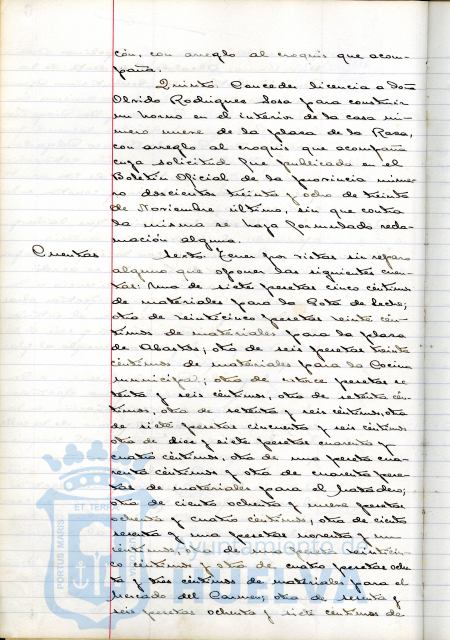 ción, con arreglo al croquis que acom-
paña.
Quinto. Conceder licencia a doña
Olvido Rodriguez Sosa para construir
un horno en el interior de la casa nú-
mero nueve de la plaza de la Rasa,
con arreglo al croquis que acompaña
cuya solicitud fue publicada en el
Boletín Oficial de la provincia núme-
ro doscientos treinta y ocho de treinta
de Noviembre último, sin que contra
la misma se haya formulado recla-
mación alguna.
Cuentas
Sexto. Tener por vistas sin reparo
alguno que oponer las siguientes cuen-
tas: Una de siete pesetas cinco céntimos
de materiales para la Gota de leche;
otra de veinticinco pesetas veinte cén-
timos de materiales para la plaza
de Abastos; otra de seis pesetas treinta
céntimos de materiales para la Cocina
municipal; otra de catorce pesetas se
tenta y seis céntimos, otra de setenta cén-
timos, otra de setenta y seis céntimos, otra
de siete pesetas cincuenta y seis céntimos
otra de diez y siete pesetas cuarenta y
cuatro céntimos, otra de una peseta cua-
renta céntimos y otra de cuarenta pese-
tas de materiales para el Matadero;
otra de ciento ochenta y nueve pesetas
ochenta y cuatro céntimos, otra de ciento
sesenta y una pesetas noventa y un
céntimos, otra de veinticin-
co céntimos y otra de cuatro pesetas ochen
ta y tres céntimos de materiales para el
Mercado del Carmen; otra de treinta y
seis pesetas ochenta y siete céntimos de
ET TERRÆ
PORTUS MARIS
Ayuntamiento de
HUELVA